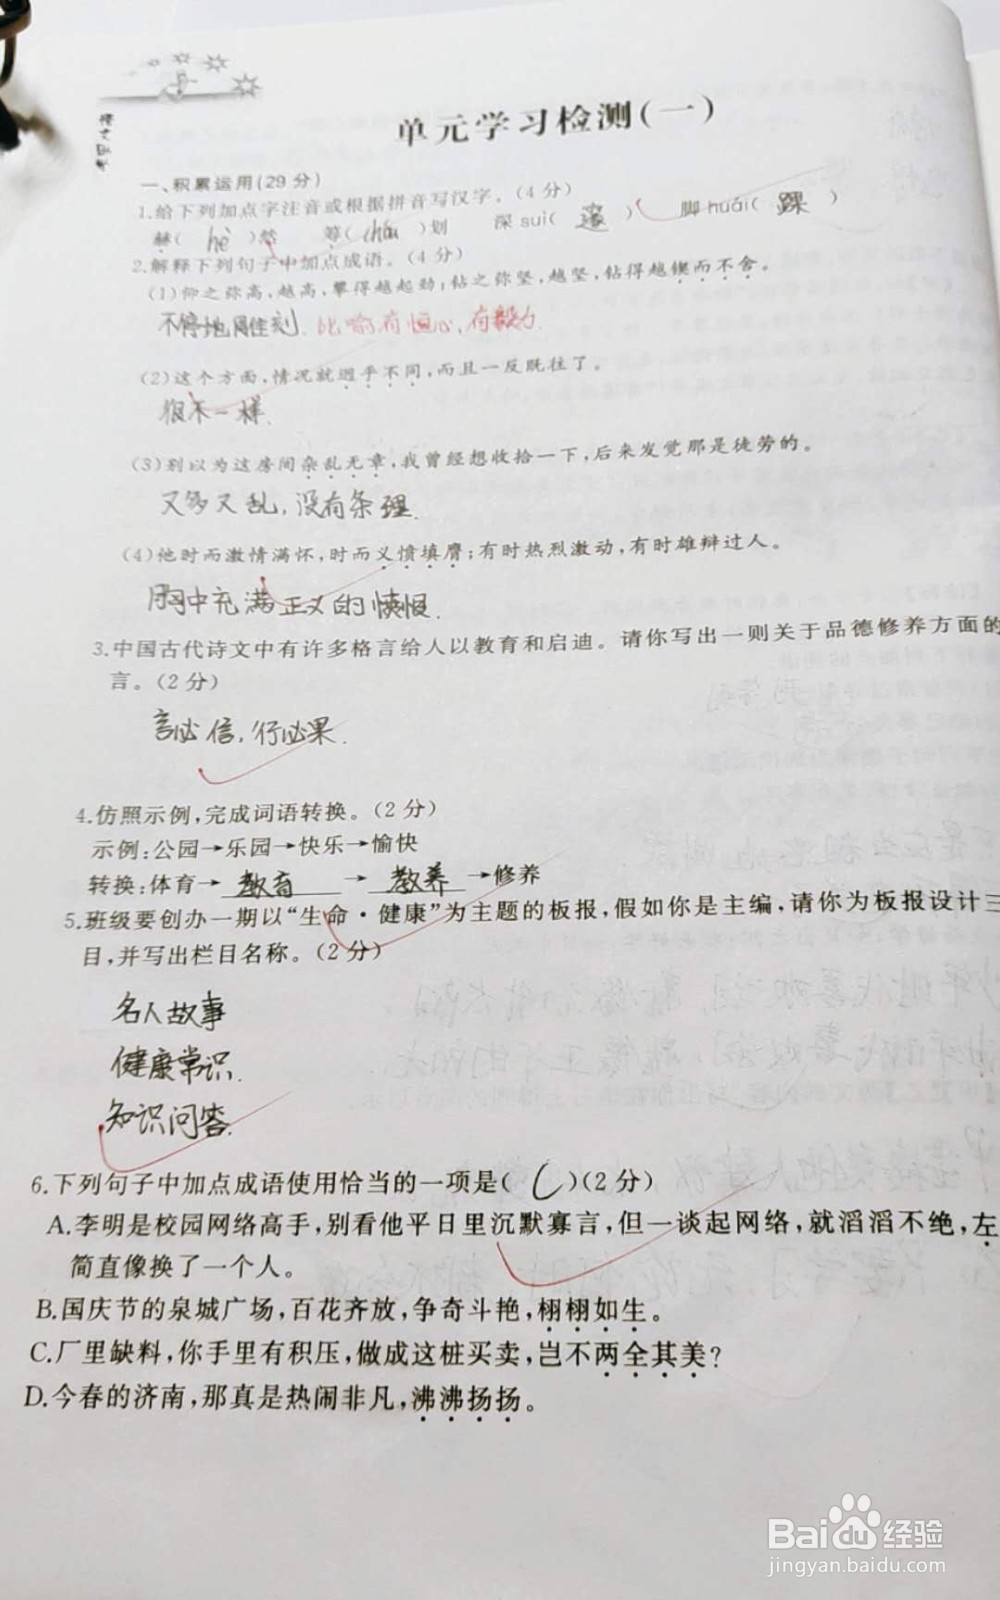 单元学习检测(一)
一、积累运用(29分)
1.给下列加点字注音或根据拼音写汉字。(4分)
赫( hè )然 筹( chóu )划 深suì( 邃 ) 脚huái( 踝 )
2.解释下列句子中加点成语。(4分)
(1)仰之弥高,越高,攀得越起劲;钻之弥坚,越坚,钻得越锲而不舍。
不停地雕刻. 比喻有恒心,有毅力.
(2)这个方面,情况就迥乎不同,而且一反既往了。
很不一样.
(3)别以为这房间杂乱无章,我曾经想收拾一下,后来发觉那是徒劳的。
又多又乱,没有条理.
(4)他时而激情满怀,时而义愤填膺;有时热烈激动,有时雄辩过人。
胸中充满正义的愤恨.
3.中国古代诗文中有许多格言给人以教育和启迪。请你写出一则关于品德修养方面的
言。(2分)
言必信,行必果.
4.仿照示例,完成词语转换。(2分)
示例:公园→乐园→快乐→愉快
转换:体育→ 教育 → 教养 →修养
5.班级要创办一期以“生命·健康”为主题的板报,假如你是主编,请你为板报设计三
目,并写出栏目名称。(2分)
名人故事
健康常识.
知识问答.
6.下列句子中加点成语使用恰当的一项是( C )(2分)
A.李明是校园网络高手,别看他平日里沉默寡言,但一谈起网络,就滔滔不绝,左
简直像换了一个人。
B.国庆节的泉城广场,百花齐放,争奇斗艳,栩栩如生。
C.厂里缺料,你手里有积压,做成这桩买卖,岂不两全其美?
D.今春的济南,那真是热闹非凡,沸沸扬扬。
Baidu经验
jingyan.baidu.com